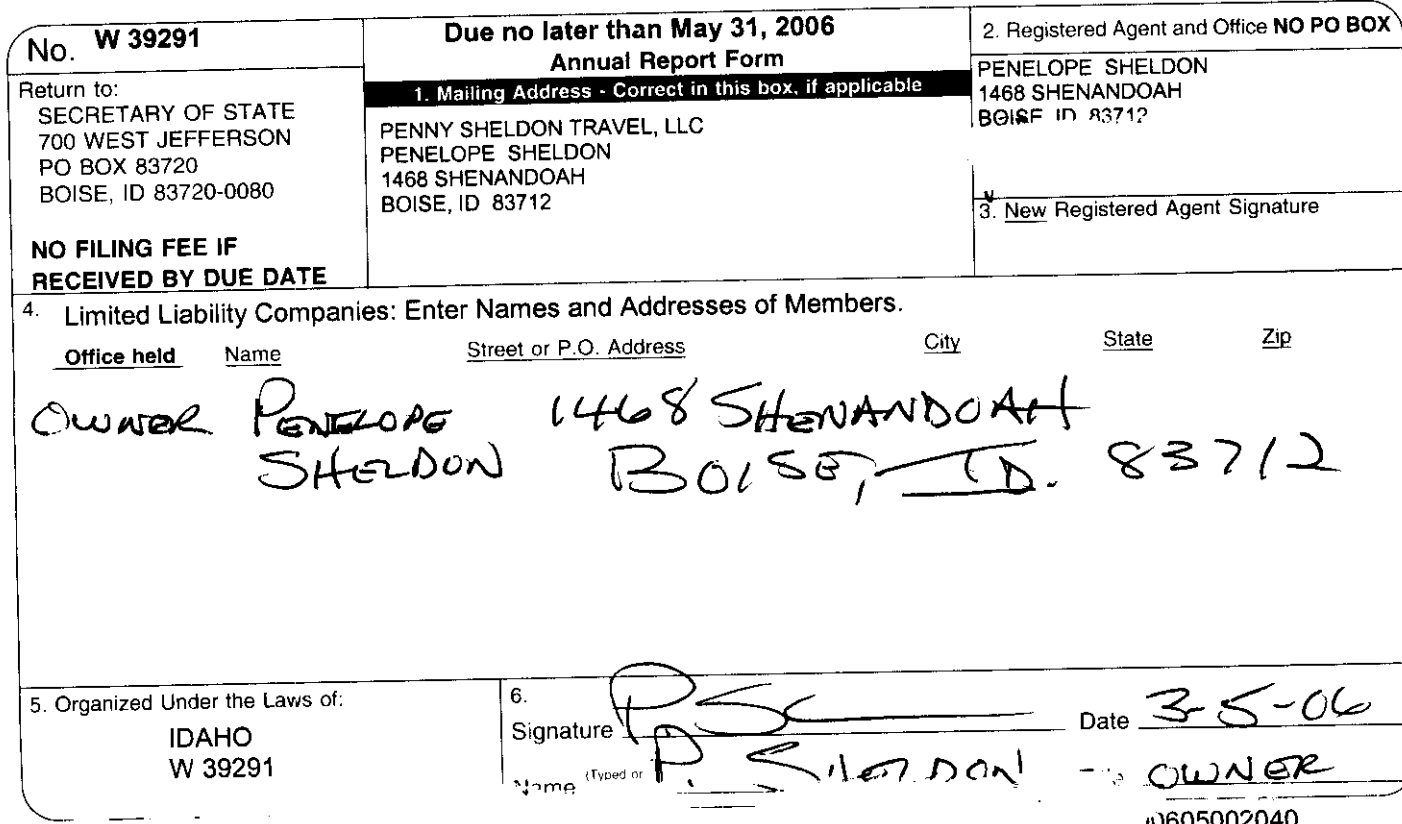 No. W 39291
Return to:
SECRETARY OF STATE
700 WEST JEFFERSON
PO BOX 83720
BOISE, ID 83720-0080
NO FILING FEE IF
RECEIVED BY DUE DATE
Due no later than May 31, 2006
Annual Report Form
1. Mailing Address - Correct in this box, if applicable
PENNY SHELDON TRAVEL, LLC
PENELOPE SHELDON
1468 SHENANDOAH
BOISE, ID 83712
2. Registered Agent and Office NO PO BOX
PENELOPE SHELDON
1468 SHENANDOAH
BOISE ID 83712
3. New Registered Agent Signature
4. Limited Liability Companies: Enter Names and Addresses of Members.
Office held Name Street or P.O. Address City State Zip
OWNER PENELOPE 1468 SHENANDOAH
SHELDON BOISE, ID. 83712
5. Organized Under the Laws of:
IDAHO
W 39291
6.
Signature Date 3-5-06
Name (Typed or P. SHELDON OWNER
0605002040